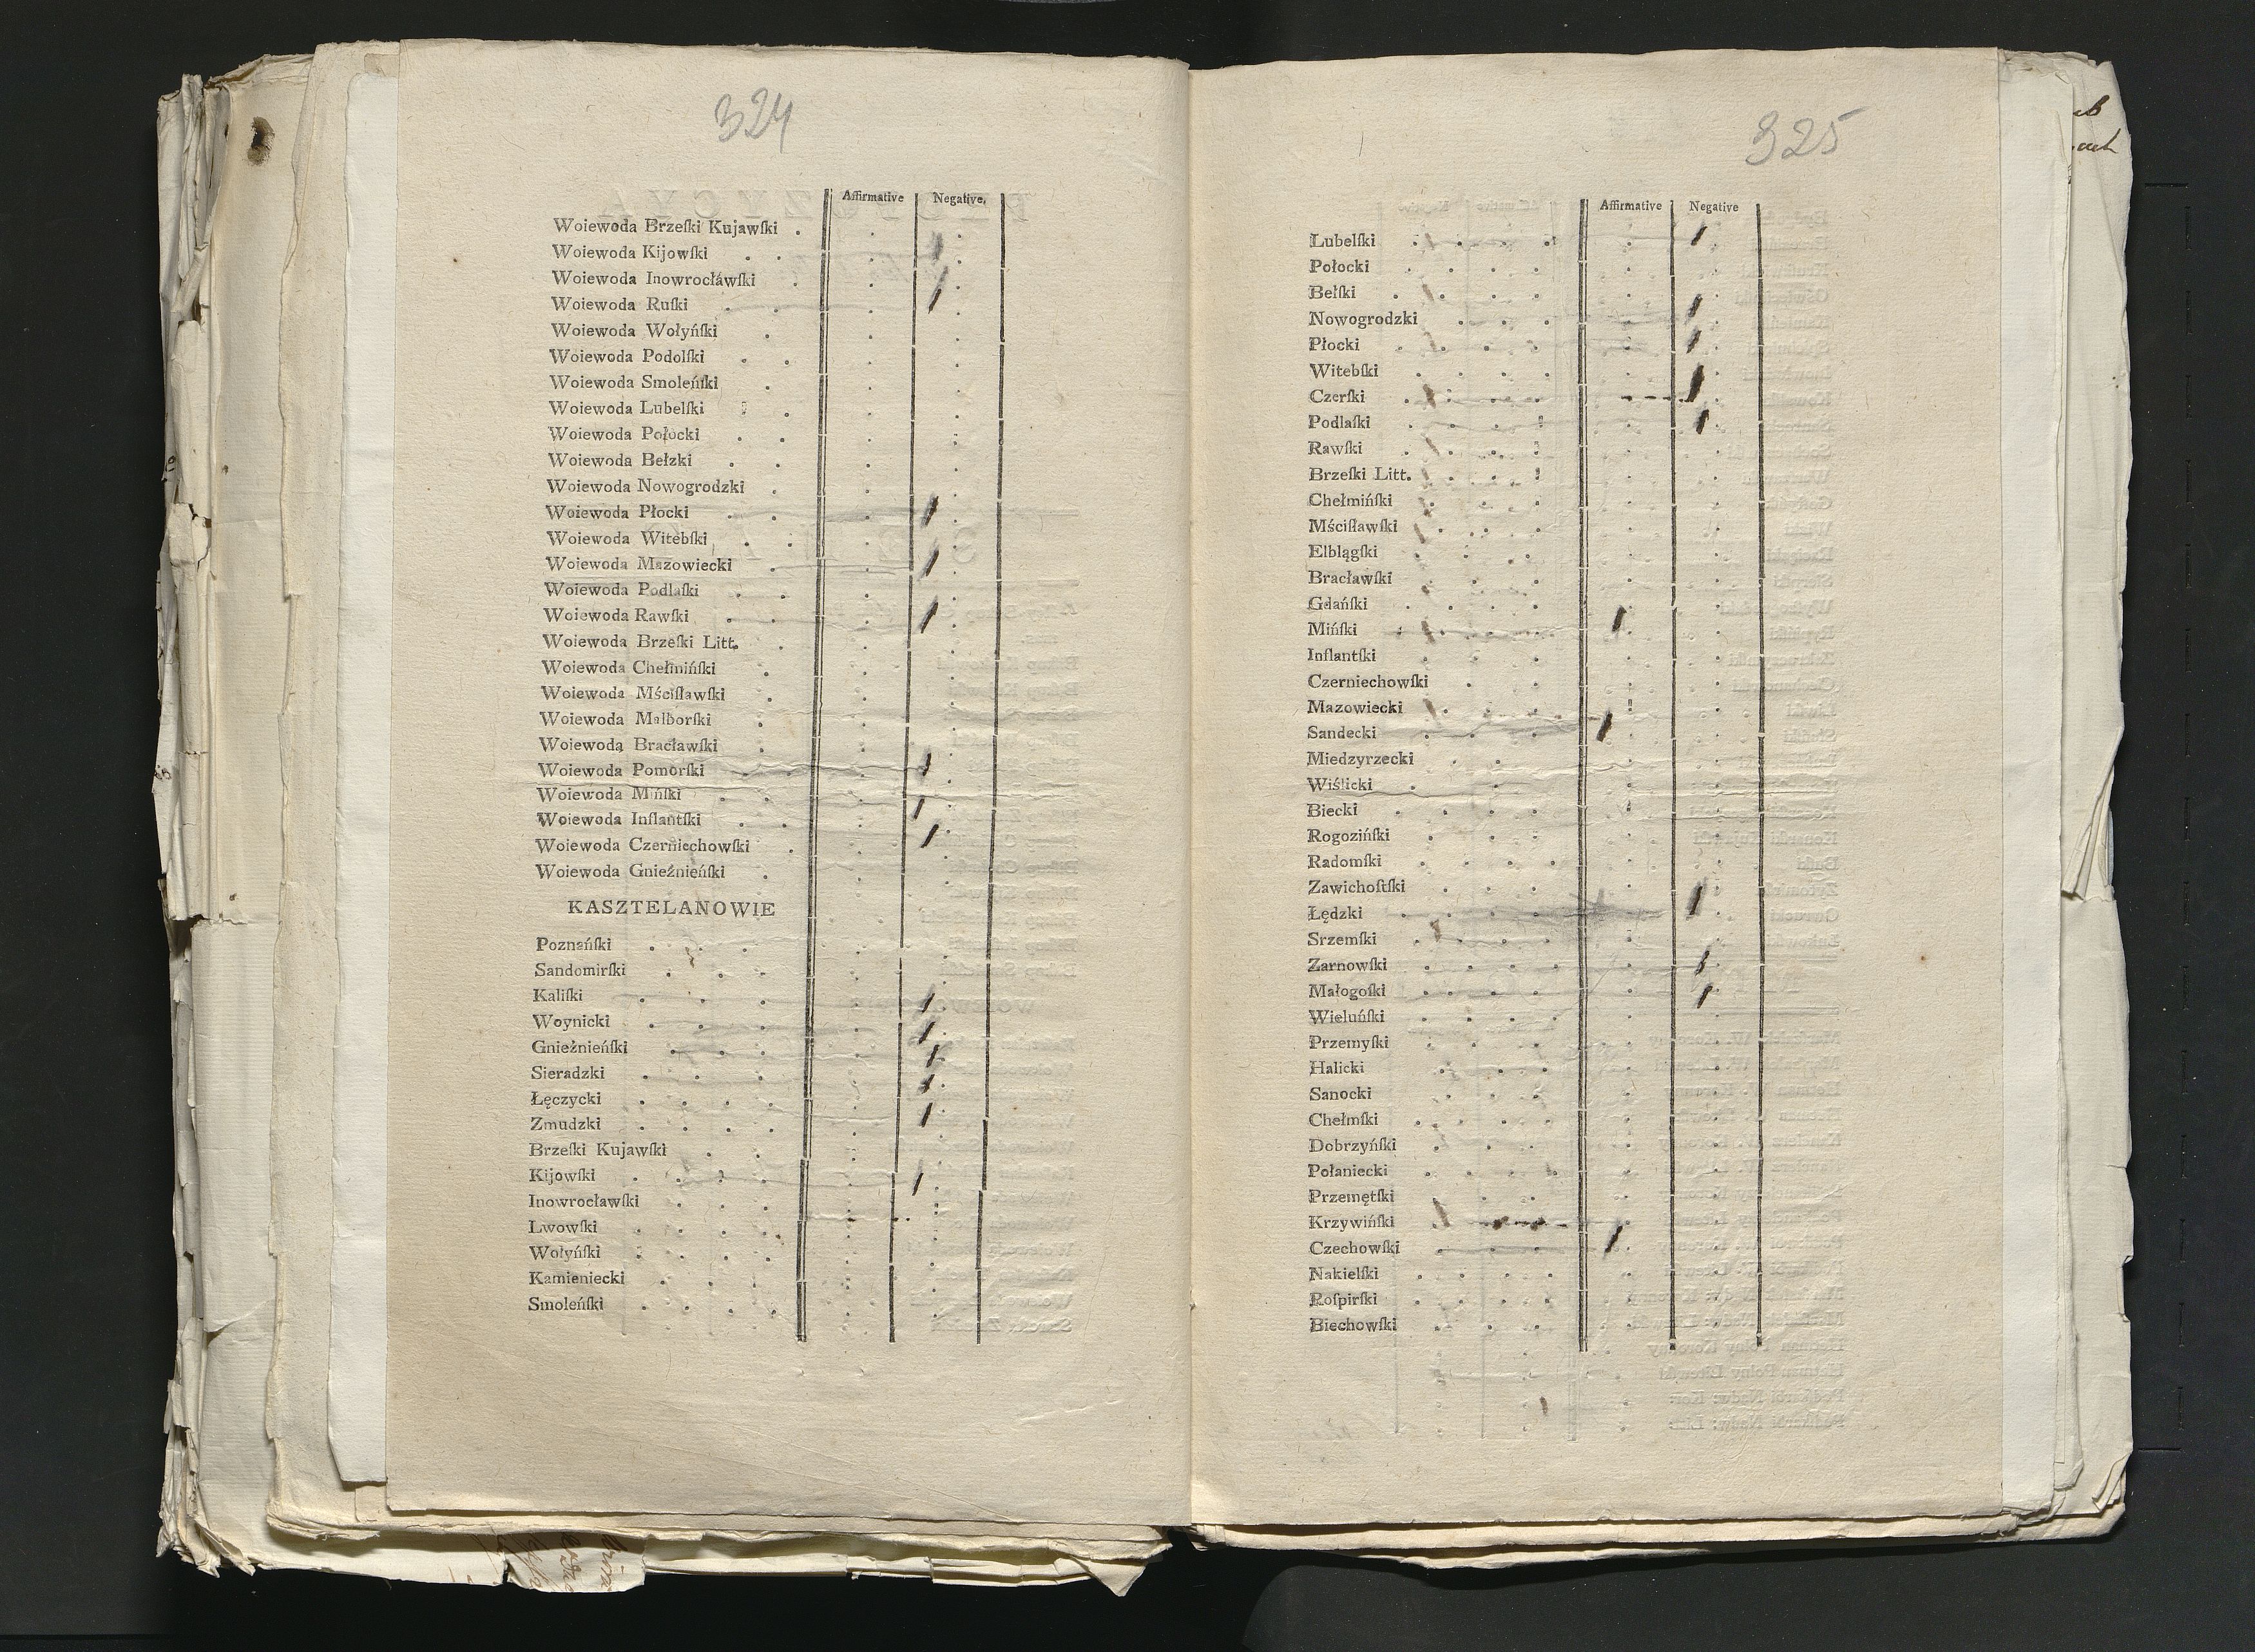 324
Affirmative Negative,
Woiewoda Brzeſki Kujawſki
Woiewoda Kijowſki
Woiewoda Inowrocłáwſki
Woiewoda Ruſki
Woiewoda Wołyńſki
Woiewoda Podolſki
Woiewoda Smoleńſki
Woiewoda Lubelſki
Woiewoda Połocki
Woiewoda Bełzki
Woiewoda Nowogrodzki
Woiewoda Płocki
Woiewoda Witebſki
Woiewoda Mazowiecki
Woiewoda Podlaſki
Woiewoda Rawſki
Woiewoda Brzeſki Litt.
Woiewoda Chełmińſki
Woiewoda Mściſławſki
Woiewoda Malborſki
Woiewoda Bracławſki
Woiewoda Pomorſki
Woiewoda Mińſki
Woiewoda Inflantſki
Woiewoda Czerniechowſki
Woiewoda Gnieźnieńſki
KASZTELANOWIE
Poznańſki
Sandomirſki
Kaliſki
Woynicki
Gnieźnieńſki
Sieradzki
Łęczycki
Zmudzki
Brzeſki Kujawſki
Kijowſki
Inowrocławſki
Lwowſki
Wołyńſki
Kamieniecki
Smoleńſki
325
Affirmative Negative
Lubelſki
Połocki
Bełſki
Nowogrodzki
Płocki
Witebſki
Czerſki
Podlaſki
Rawſki
Brzeſki Litt.
Chełmińſki
Mściſławſki
Elblągſki
Bracławſki
Gdańſki
Mińſki
Inflantſki
Czerniechowſki
Mazowiecki
Sandecki
Miedzyrzecki
Wiślicki
Biecki
Rogozińſki
Radomſki
Zawichoſtſki
Łędzki
Srzemſki
Zarnowſki
Małogoſki
Wieluńſki
Przemyſki
Halicki
Sanocki
Chełmſki
Dobrzyńſki
Połaniecki
Przemętſki
Krzywińſki
Czechowſki
Nakielſki
Roſpirſki
Biechowſki